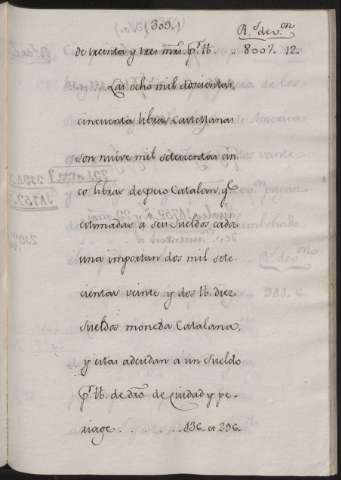 309.
R.s de v.on
de treinta y tres mrs. p.r ℔. .. 8007. 12.
Las ocho mil doscientas
cincuenta libras Castellanas
son nueve mil setecientas cin
co libras de peso Catalan, q.e
estimadas a seis sueldos cada
una importan dos mil sete
cientas veinte y dos ℔. diez
sueldos moneda Catalana,
y estas adeudan a un sueldo
p.r ℔. de dro. de Ciudad y pe
riage . . . . 136. ct 396.